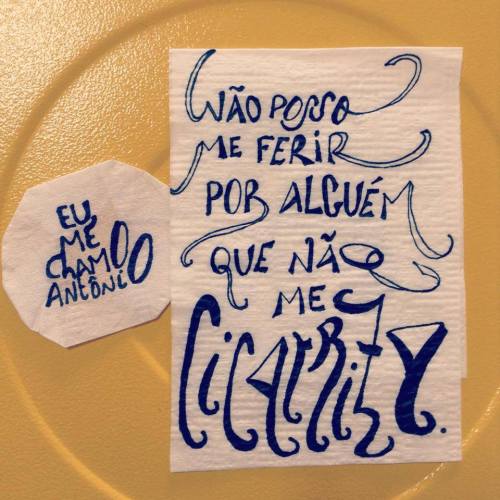 EU
ME
CHAMO
ANTÔNIO
NÃO POSSO
ME FERIR
POR ALGUÉM
QUE NÃO
ME
CICATRIZA.